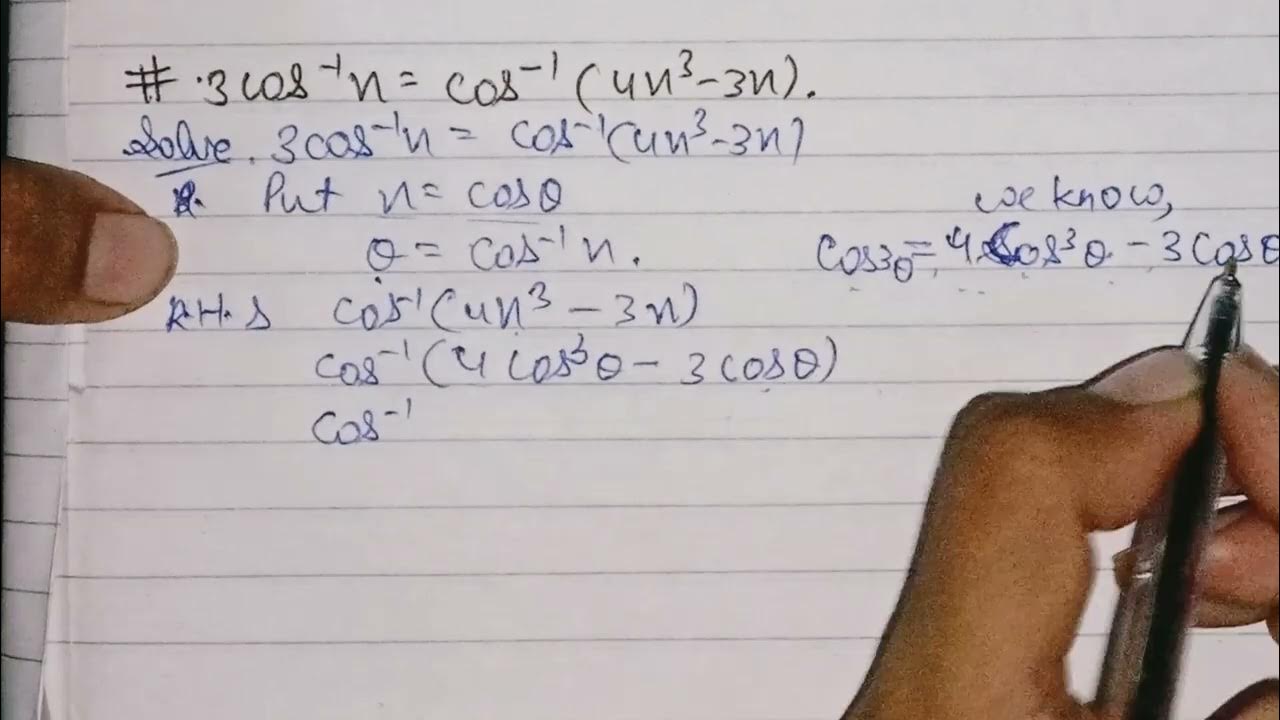 # .3cos⁻¹x = cos⁻¹(4x³-3x).
Solve. 3cos⁻¹x = cos⁻¹(4x³-3x)
Put x = cosθ
θ = cos⁻¹x.
we know,
cos3θ = 4cos³θ - 3cosθ
R.H.S cos⁻¹(4x³ - 3x)
cos⁻¹(4cos³θ - 3cosθ)
cos⁻¹